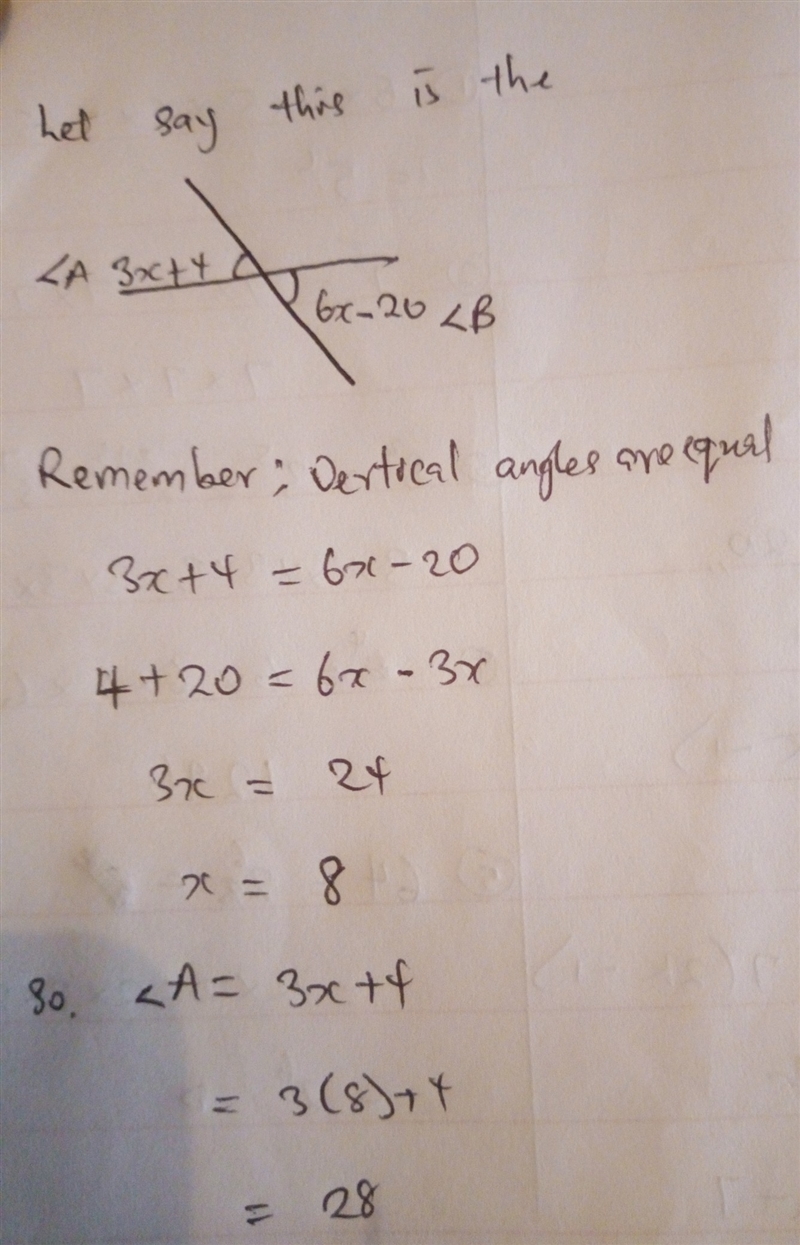 Let say this is the
∠A 3x+4
6x-20 ∠B
Remember; Vertical angles are equal
3x+4 = 6x-20
4+20 = 6x-3x
3x = 24
x = 8
So. ∠A = 3x+4
= 3(8)+4
= 28